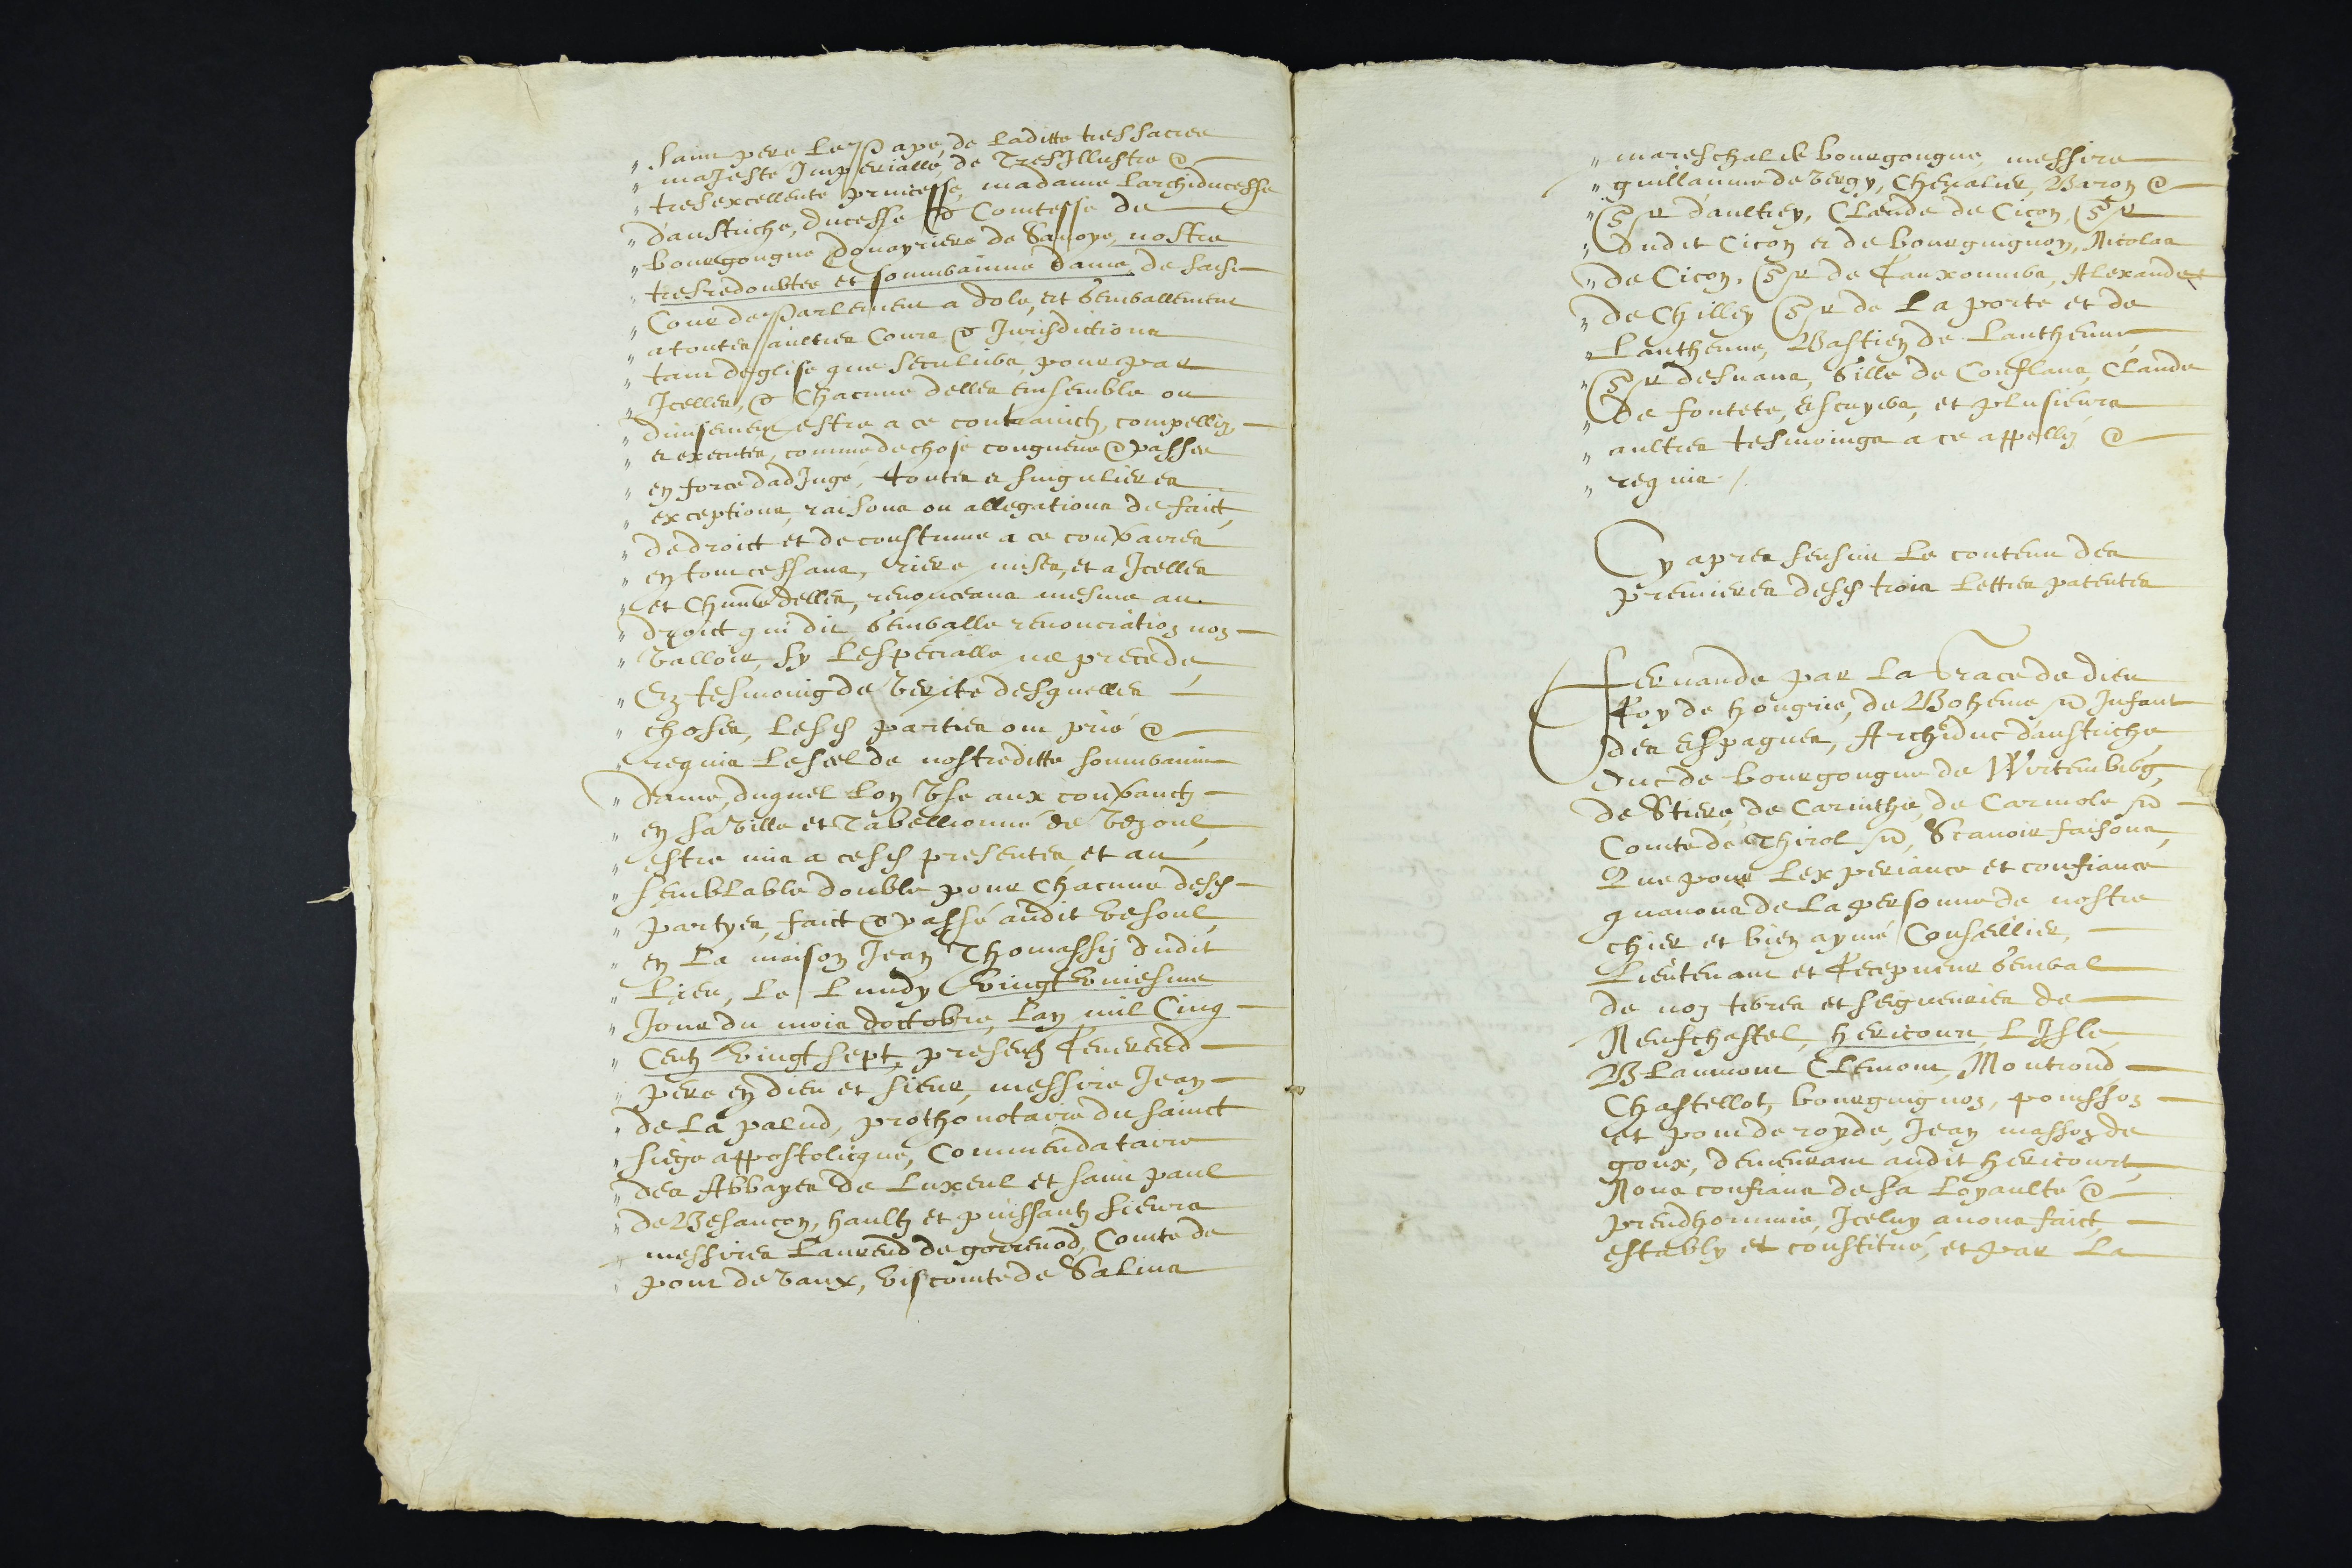 " Saint pere Le Pape, de Laditte tressacree
" maJesté Imperialle, de TresJllustre &
" tresexcellente princesse, madame Larchiducesse
" daustriche, ducesse & Comtesse de
" bourgongne douayriere de Savoye, nostre
" tresredoubtee et souveraine dame, de sa
" Cour de Parlement a dole, et generallement
" a toutes aultres Cours & Jurisdictions
" tant deglise que seculiere, pour par
" Jcelles, & Chacune delles ensemble ou
" divisement estre a ce contrainctz, compelliz
" et executés, comme de chose congneue & passee
" en force dadJugé, toutes et singulieres
" exceptions, raisons ou allegations de faict,
" de droict et de coustume a ce contraires
" en tout cessans, riere mises, et a Jcelles
" et Chune delles, renonceans mesme au
" droict qui dit generalle renonciation non
" Valloir, sy Lespecialle ne precede,
" En tesmoing de Verité desquelles
" choses, Lesd parties ont prié &
" requis Le seel de nostreditte souveraine
" Dame, duquel Lon Vse aux contraictz
" en sa Ville et Tabellionné de Vezoul
" estre mis a cesd presentes, et au
" semblable double pour Chacune desd
" partyes, faict & passé audit Vesoul,
" en La maison Jean Thomassij dudit
" Lieu, Le Lundy Vingt Vniesme
" Jour du mois doctobre, Lan mil Cinq
" Centz Vingt sept, presentz Reverend
" pere en dieu et sieur, messire Jean
" de La palud, prothonotaire du sainct
" siege appostolicque, Commendataire
" des Abbayes de Luxeul et saint paul
" de Besancon, haultz et puissantz sieurs
" messires Laurend de gorrenod, Comte de
" pont de Vaux, Viscomte de Salins
" mareschal de bourgongne, messire
" guillaume de Vergy, Chevalier, Baron &
" Sr daultrey, Claude de Cicon, Sr
" dudit Cicon et de bourguignon, Nicolas
" de Cicon, Sr de Rauxonniere, Alexandre
" de Chilley Sr de La porte et de
" Lanthenne, Bastien de Lanthenne,
" Sr desnans, Gille de Conflans, Claude
" de fontete, escuyers, et plusieurs
" aultres tesmoings a ce appellez &
" requis /.
Cy apres sensuit Le contenu des
premieres desd trois Lettres patentes
Fernande par La Grace de dieu
Roy de hongrie, de Boheme & Jnfant
des Espagnes, Archiduc daustriche,
duc de bourgongne de Wirtemberg,
de Stiere, de Carinthie, de Carniole &
Comte de Thirol &, Scavoir faisons,
Que pour Lexperiance et confiance
quavons de La personne de nostre
chier et bien aymé Conseillier,
Lieutenant et Recepveur general
de noz terres et seigneuries de
Neufchastel, hericourt, LJsle,
Blanmont Clemont, Montrond
Chastellot, bourguignon, poinsson
et pont de royde, Jean masson de
goux, demeurant audit hericourt,
Nous confians de sa Loyaulté &
preudhommie, Jceluy avons faict,
estably et constitué, et par La